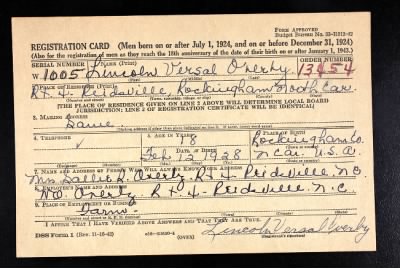 FORM APPROVED
Budget Bureau No. 33-R1013-42
REGISTRATION CARD (Men born on or after July 1, 1924, and on or before December 31, 1924)
(Also for the registration of men as they reach the 18th anniversary of the date of their birth on or after January 1, 1943.)
SERIAL NUMBER 1. NAME (Print) ORDER NUMBER
W. 1005 Lincoln Versal Overby 13454
2. PLACE OF RESIDENCE (Print)
Rt. 4 - Reidsville, Rockingham North Car.
[THE PLACE OF RESIDENCE GIVEN ON LINE 2 ABOVE WILL DETERMINE LOCAL BOARD
JURISDICTION; LINE 2 OF REGISTRATION CERTIFICATE WILL BE IDENTICAL]
3. MAILING ADDRESS
Same
4. TELEPHONE 5. AGE IN YEARS 6. PLACE OF BIRTH
18 Rockingham Co.
DATE OF BIRTH
Feb 12 1928 N. Car. U.S.A.
7. NAME AND ADDRESS OF PERSON WHO WILL ALWAYS KNOW YOUR ADDRESS
Mrs. Sallie R. Overby. Rt. 4 - Reidsville, N.C.
8. EMPLOYER'S NAME AND ADDRESS
Overby. Rt. 4 - Reidsville, N.C.
9. PLACE OF EMPLOYMENT OR BUSINESS
Farm
I AFFIRM THAT I HAVE VERIFIED ABOVE ANSWERS AND THAT THEY ARE TRUE.
DSS Form 1 (Rev. 11-16-42) (OVER) Lincoln Versal Overby